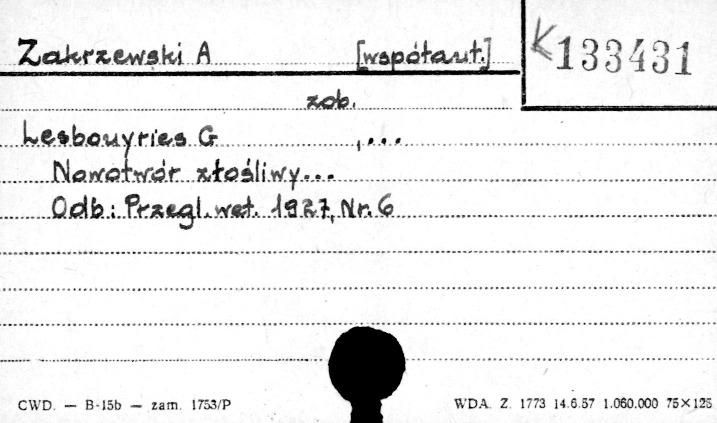 Zakrzewski A [współaut.]
K133431
zob.
Lesbouyries G ,...
Nowotwór złośliwy...
Odb: Przegl. wet. 1927, Nr. 6
CWD. — B-15b — zam. 1753/P
WDA. Z. 1773 14.6.57 1.060.000 75×125